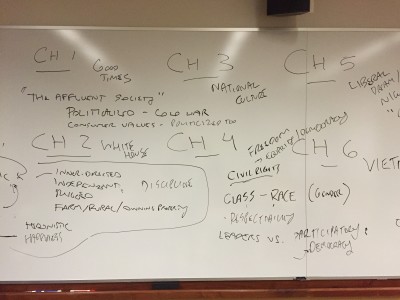 CH 1
GOOD
TIMES
"THE AFFLUENT SOCIETY"
POLITICIZED - COLD WAR
CONSUMER VALUES - POLITICIZED TOO
CH 2 WHITE
HOUSE
INNER-DIRECTED
INDEPENDENT,
DISCIPLINE
RUGGED
FARM/RURAL/OWNING PROPERTY
HEDONISTIC
HAPPINESS
CH 3
NATIONAL
CULTURE
CH 4
FREEDOM
EQUALITY/DEMOCRACY
CIVIL RIGHTS
CLASS - RACE (GENDER)
RESPECTABILITY
LEADERS VS. PARTICIPATORY
DEMOCRACY
CH 5
LIBERAL
CH 6